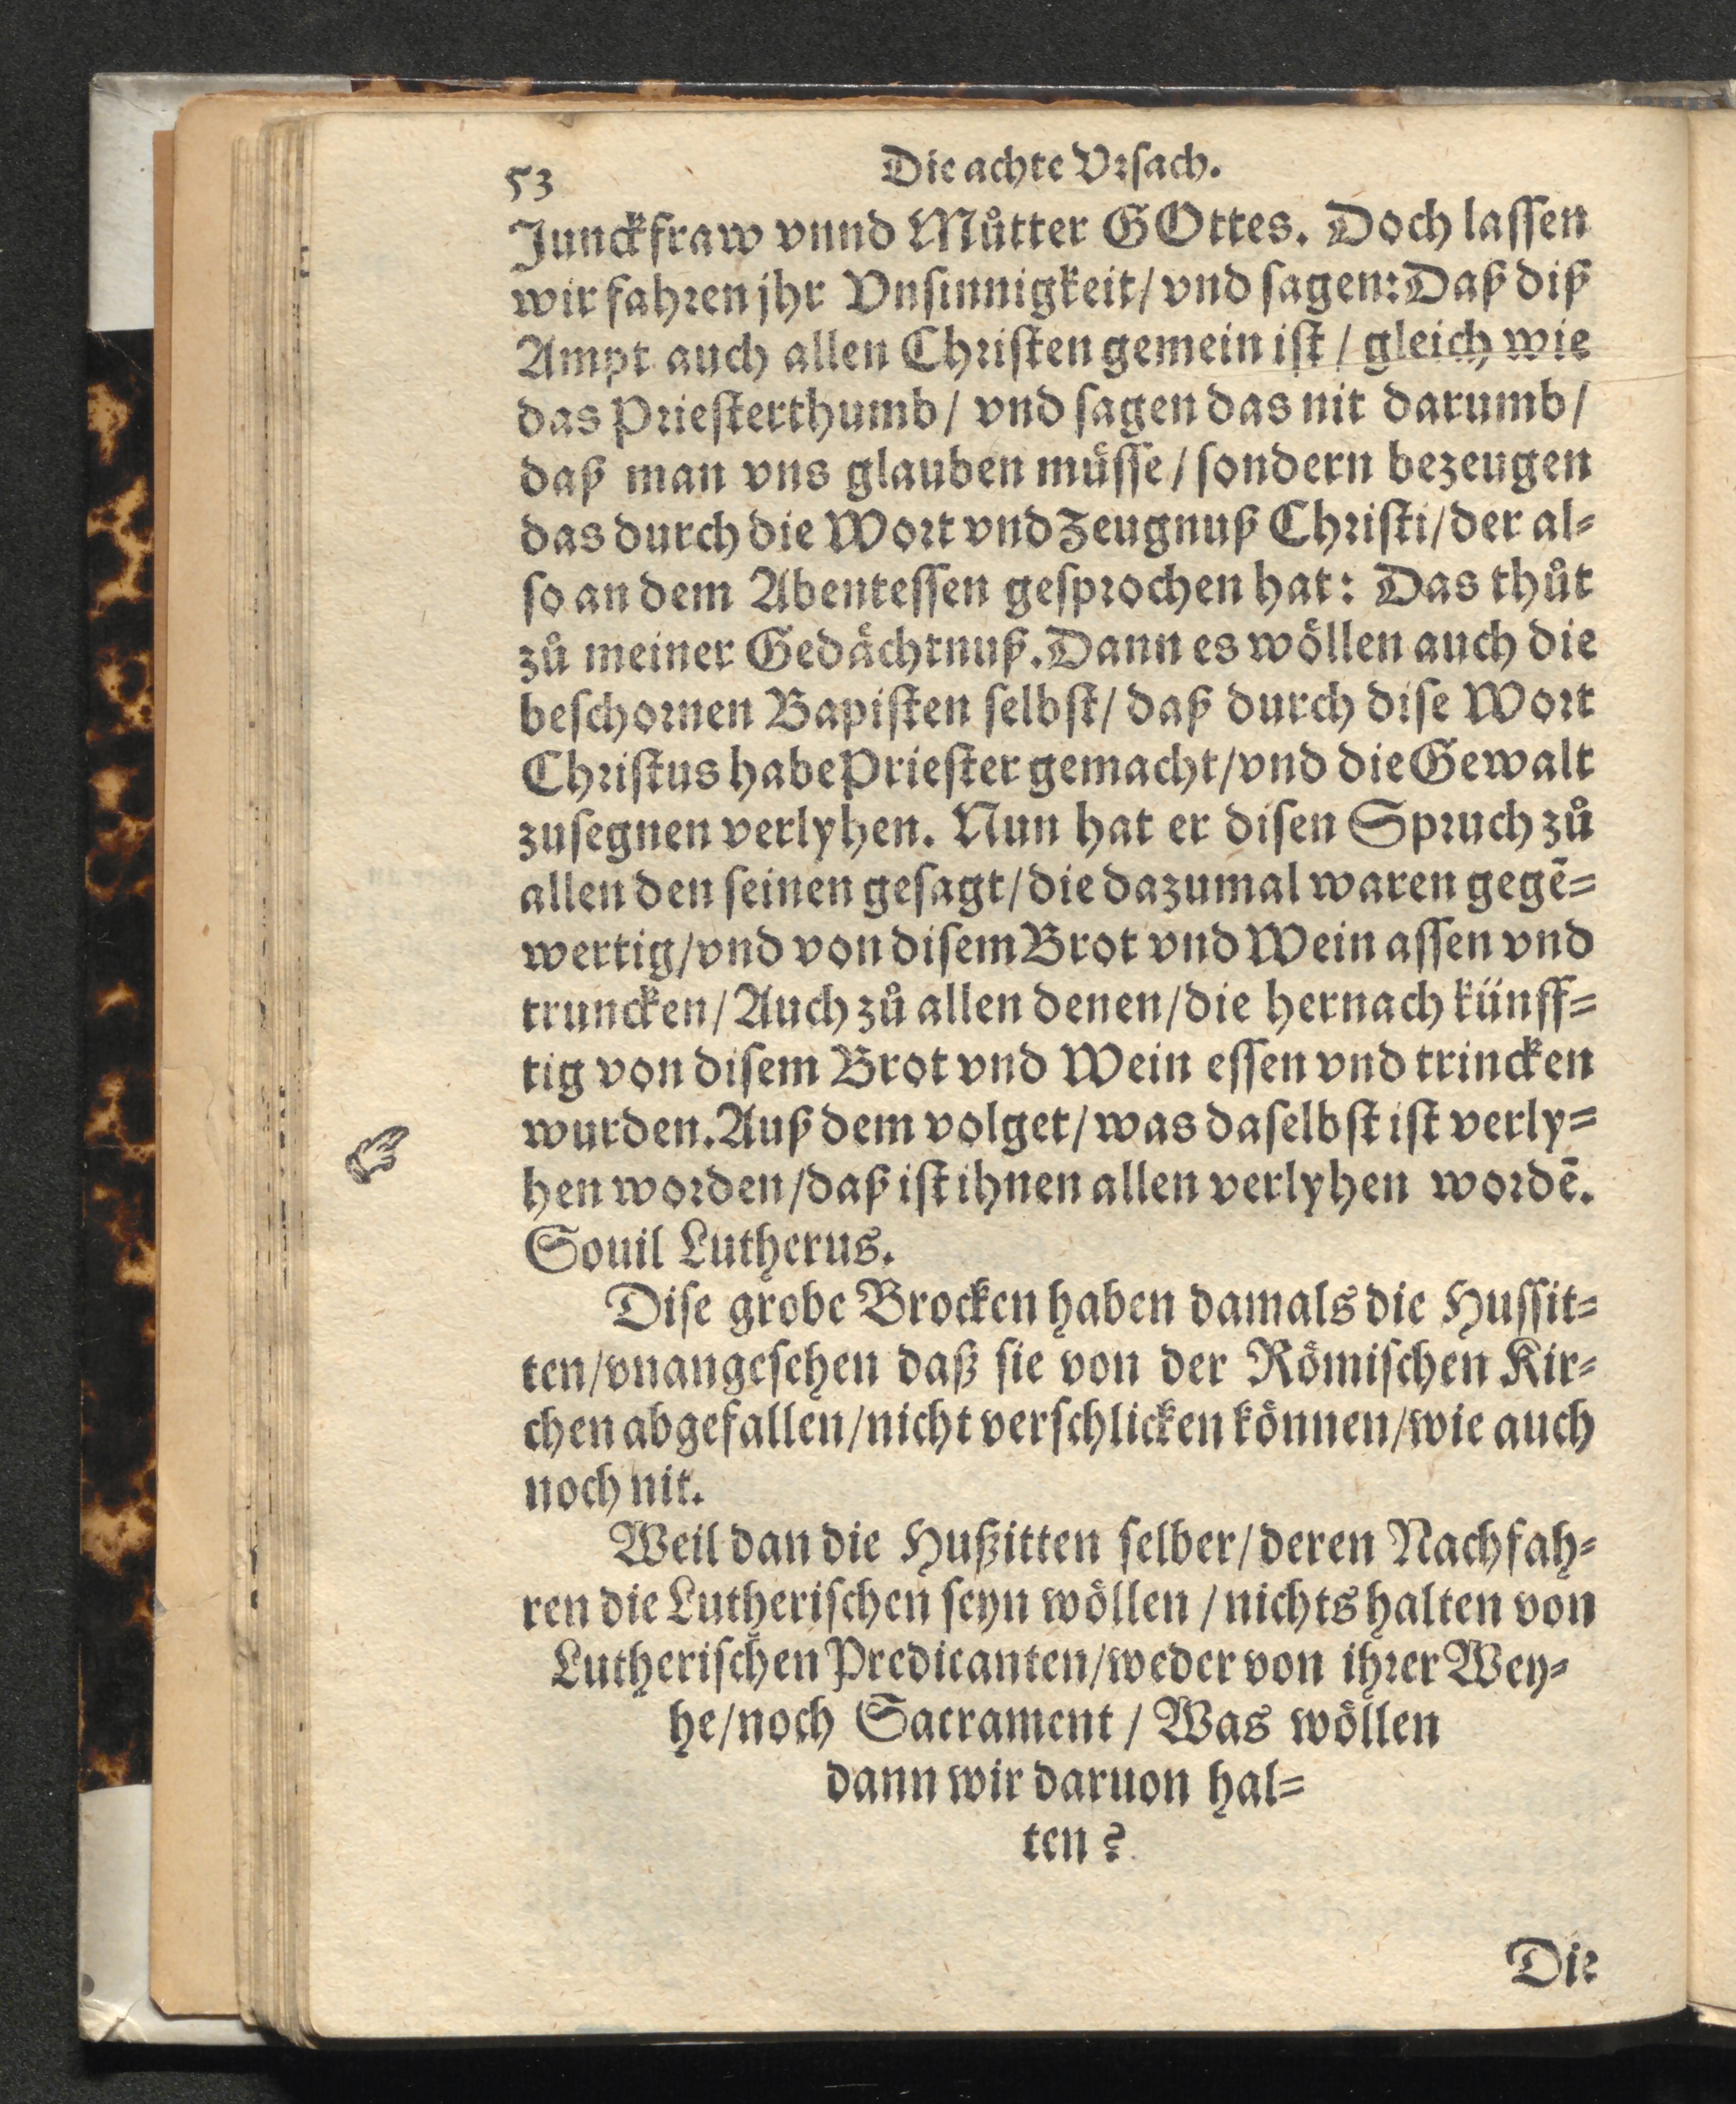 53
Die achte Vrsach.
Junckfraw vnnd Můtter GOttes. Doch lassen
wir fahren jhr Vnsinnigkeit/ vnd sagen: Daß diß
Ampt auch allen Christen gemein ist / gleich wie
das Priesterthumb/ vnd sagen das nit darumb/
daß man vns glauben müsse/ sondern bezeugen
das durch die Wort vnd Zeugnuß Christi/ der al⸗
so an dem Abentessen gesprochen hat: Das thůt
zů meiner Gedächtnuß. Dann es wöllen auch die
beschornen Bapisten selbst/ daß durch dise Wort
Christus habe Priester gemacht/ vnd die Gewalt
zusegnen verlyhen. Nun hat er disen Spruch zů
allen den seinen gesagt/ die dazumal waren gegē⸗
wertig/ vnd von disem Brot vnd Wein assen vnd
truncken/ Auch zů allen denen/ die hernach künff⸗
tig von disem Brot vnd Wein essen vnd trincken
wurden. Auß dem volget/ was daselbst ist verly⸗
☞
hen worden/ daß ist ihnen allen verlyhen wordē.
Souil Lutherus.
Dise grobe Brocken haben damals die Hussit⸗
ten/ vnangesehen daß sie von der Römischen Kir⸗
chen abgefallen/ nicht verschlicken können/ wie auch
noch nit.
Weil dan die Hußitten selber/ deren Nachfah⸗
ren die Lutherischen seyn wöllen / nichts halten von
Lutherischen Predicanten/ weder von ihrer Wey⸗
he/ noch Sacrament / Was wöllen
dann wir daruon hal⸗
ten?
Die